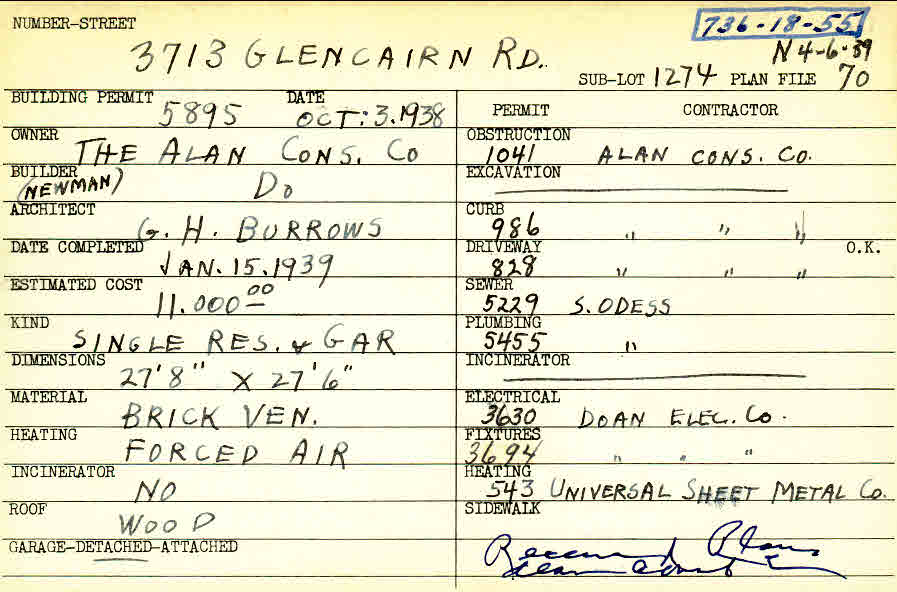 NUMBER-STREET
736-18-55
3713 GLENCAIRN RD.
N 4-6-39
SUB-LOT 1274 PLAN FILE 70
BUILDING PERMIT 5895 DATE OCT. 3. 1938
OWNER THE ALAN CONS. CO
BUILDER (NEWMAN) DO
ARCHITECT G. H. BURROWS
DATE COMPLETED JAN. 15. 1939
ESTIMATED COST 11.000 00
KIND SINGLE RES. & GAR
DIMENSIONS 27'8" X 27'6"
MATERIAL BRICK VEN.
HEATING FORCED AIR
INCINERATOR NO
ROOF WOOD
GARAGE-DETACHED-ATTACHED
PERMIT CONTRACTOR
OBSTRUCTION 1041 ALAN CONS. CO.
EXCAVATION
CURB 986 " " "
DRIVEWAY 828 " " " O.K.
SEWER 5229 S. ODESS
PLUMBING 5455 "
INCINERATOR
ELECTRICAL 3630 DOAN ELEC. CO.
FIXTURES 3694 " " "
HEATING 543 UNIVERSAL SHEET METAL CO.
SIDEWALK
Plans